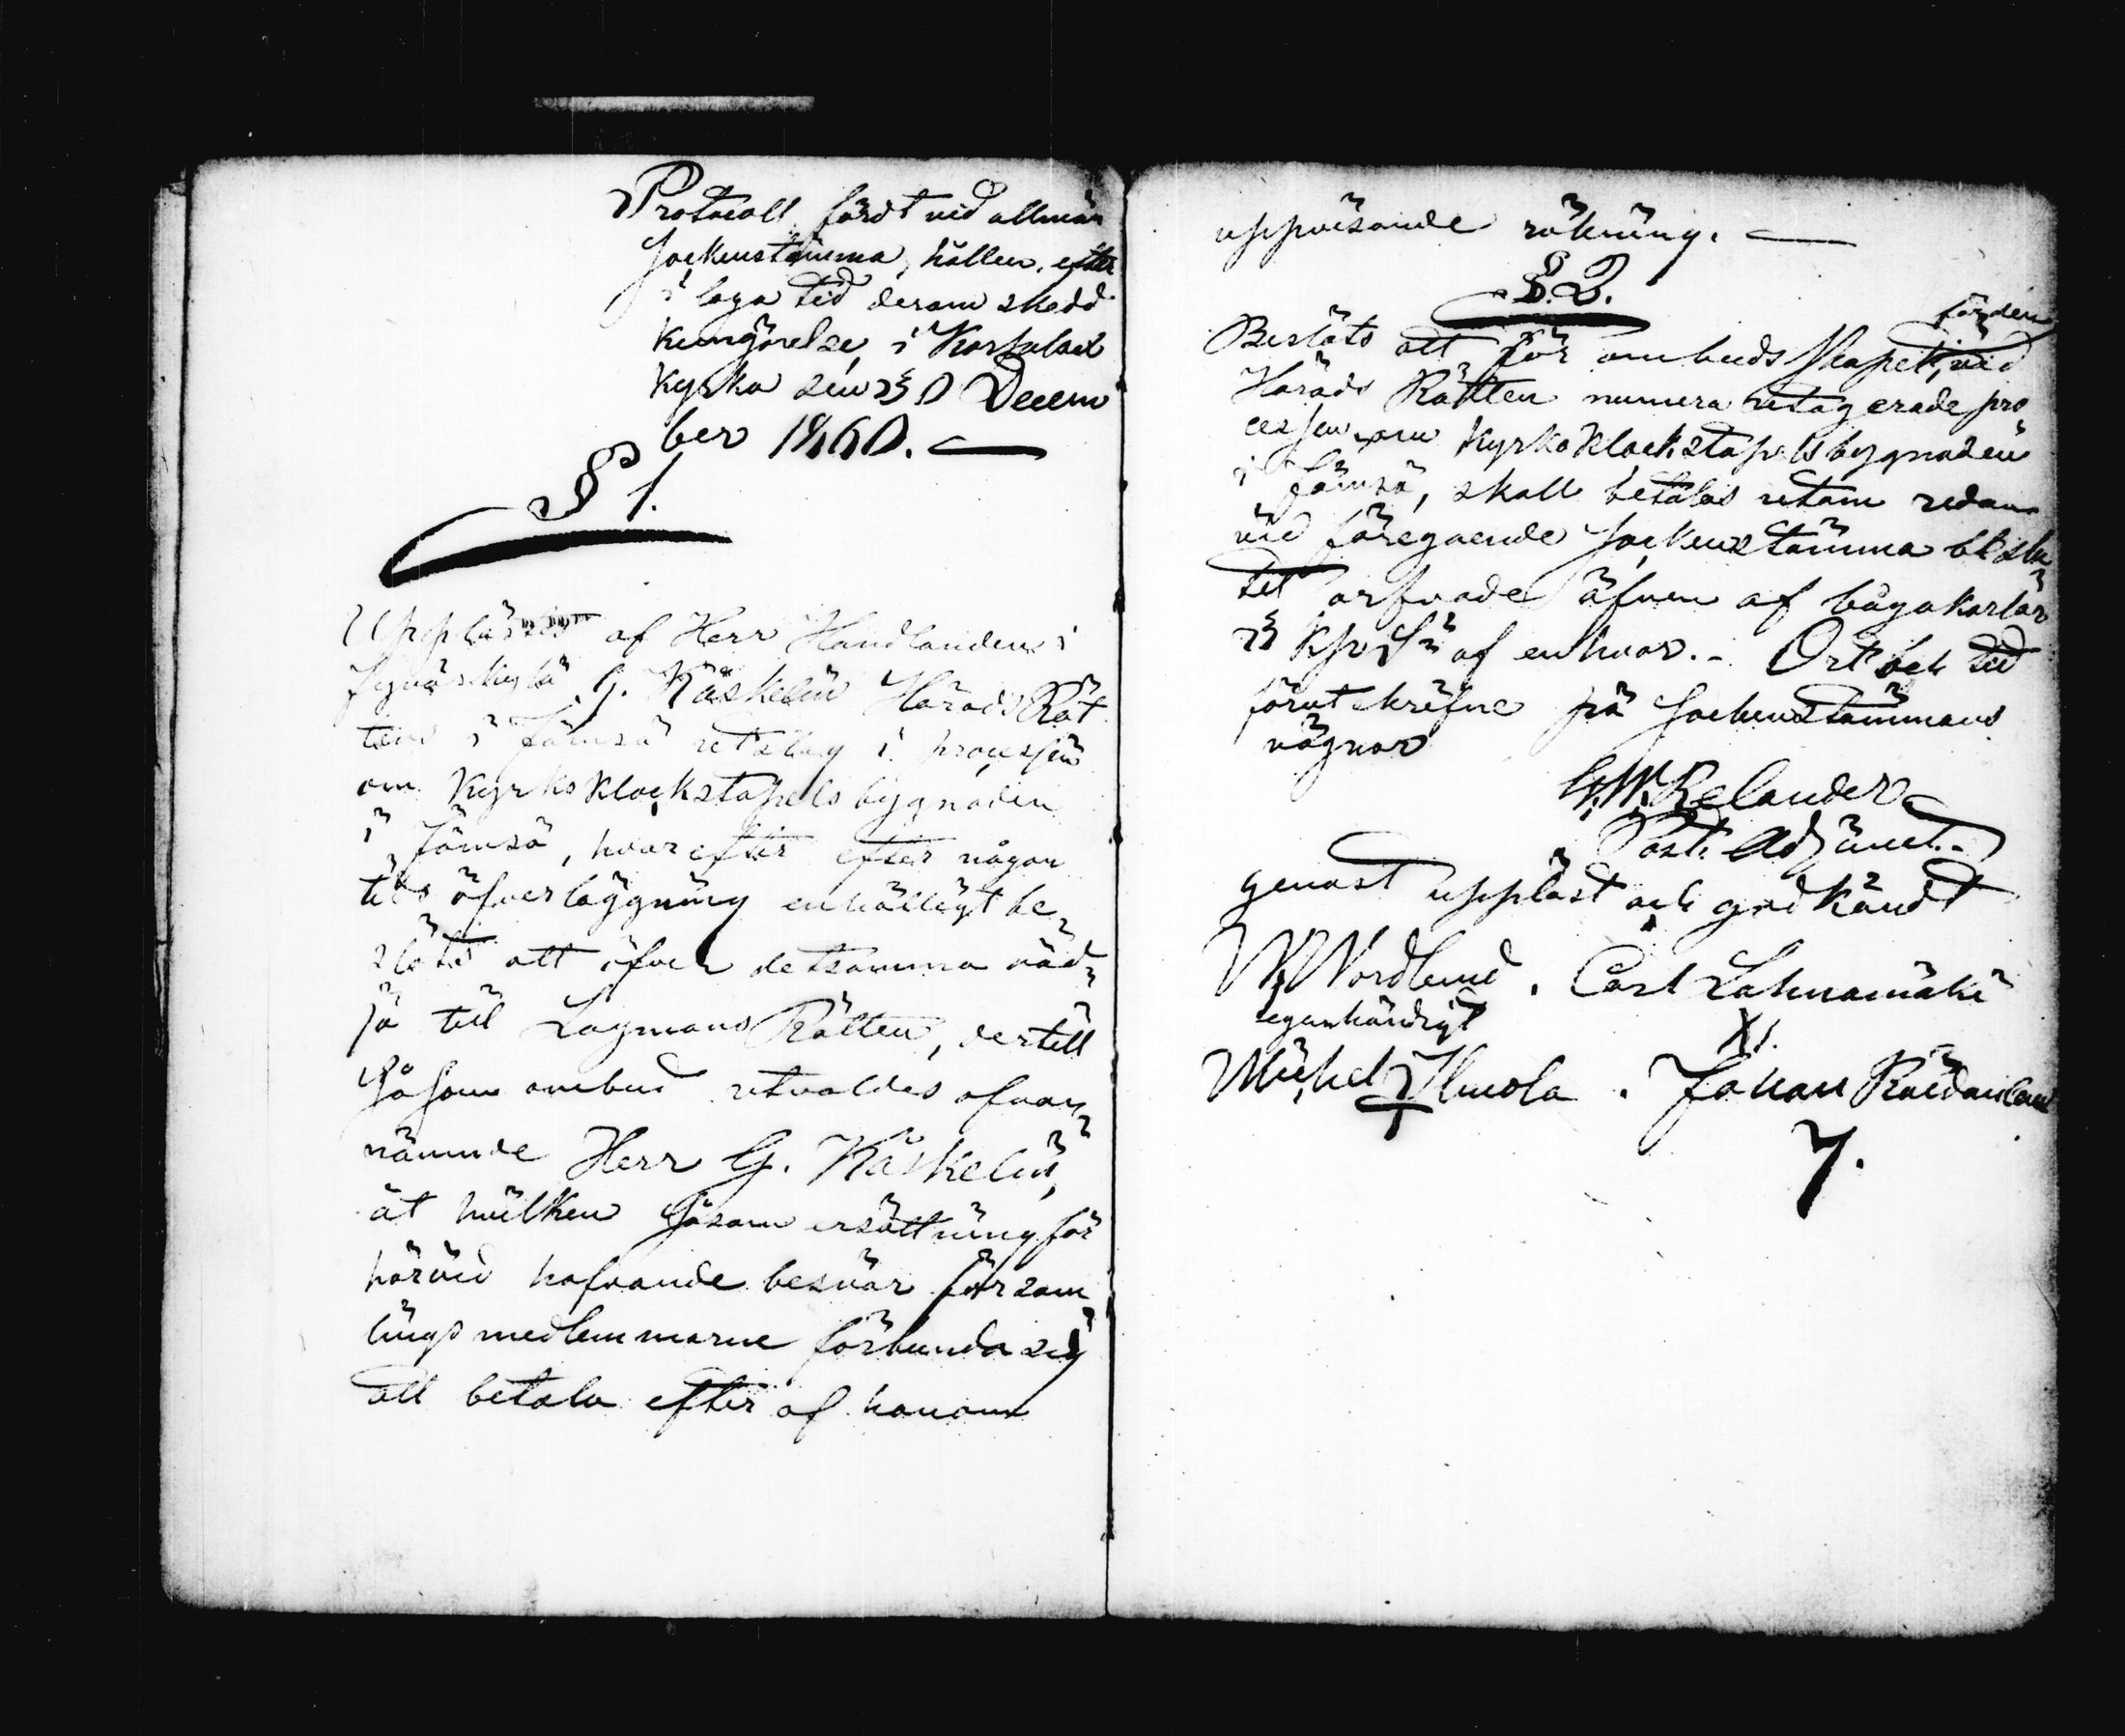 Protocoll, fördt vid allmän
Sockenstämma, hållen, efter
i laga tid derom skedd
kungörelse, i Korpilax
Kyrka den 30 Decem
ber 1860. —
§ 1.
Upplästes af Herr Handlanden i
Jyväskylä G. Käskelin Härads Rät
tens i Jämsä utslag i processen
om Kyrko Klockstapels bygnaden
i Jämsä, hvarefter efter någon
tids öfverläggning enhälligt be
slöts att öfver detsamma väd
ja till Lagmans Rätten, dertill
såsom ombud utvaldes ofvan
nämnde Herr G. Käskelin,
åt hvilken såsom ersättning för
härvid hafvande besvär försam
lings medlemmarne förbundo sig
att betala efter af honom
uppvisande räkning. —
§. 2.
Beslöts att för ombudskapet, vid för den
Härads Rätten numera utagerade pro
cessen om Kyrko Klockstapels bygnaden
i Jämsä, skall betalas utom redan
vid föregående Sockenstämma beslu
tet arfvode äfven af båga karlar
af enhvar. - Ort och tid
förutskrefne på Sockenstämmans
vägnar
G. W. Relander
Past. Adjunct.
genast uppläst och godkändt
W Nordlund. Carl Lahnamäki
egenhändigt XI.
Michel Ilmola. Johan Raidanlam
7.